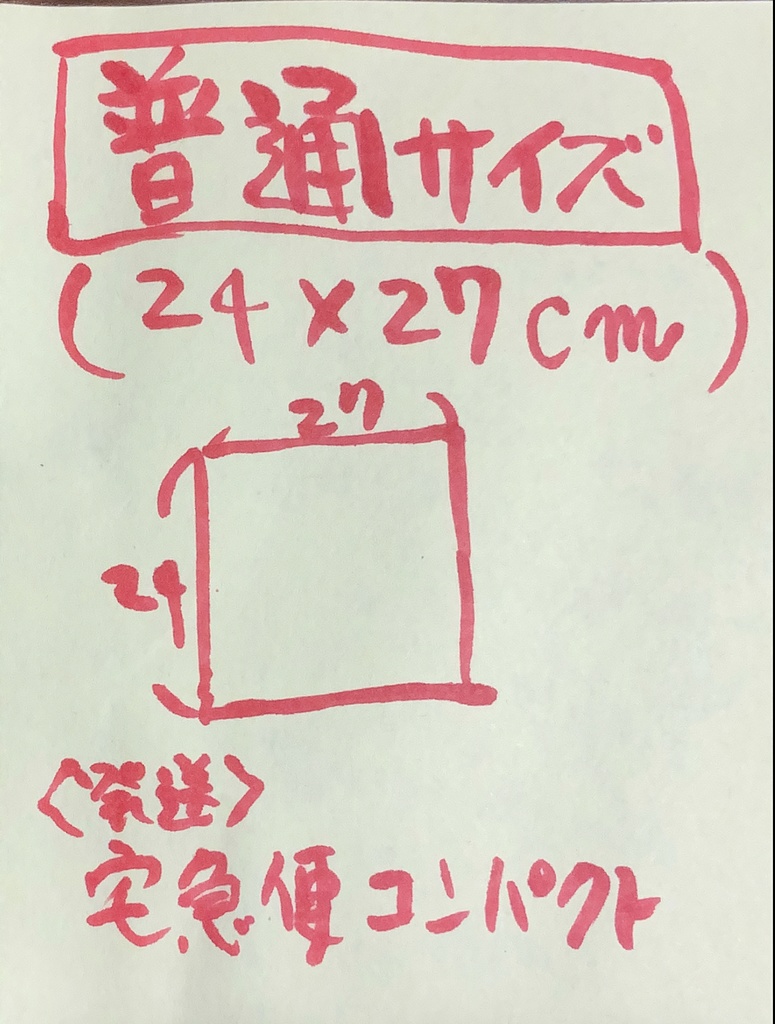 普通サイズ
(24×27cm)
27
24
〈発送〉
宅急便コンパクト